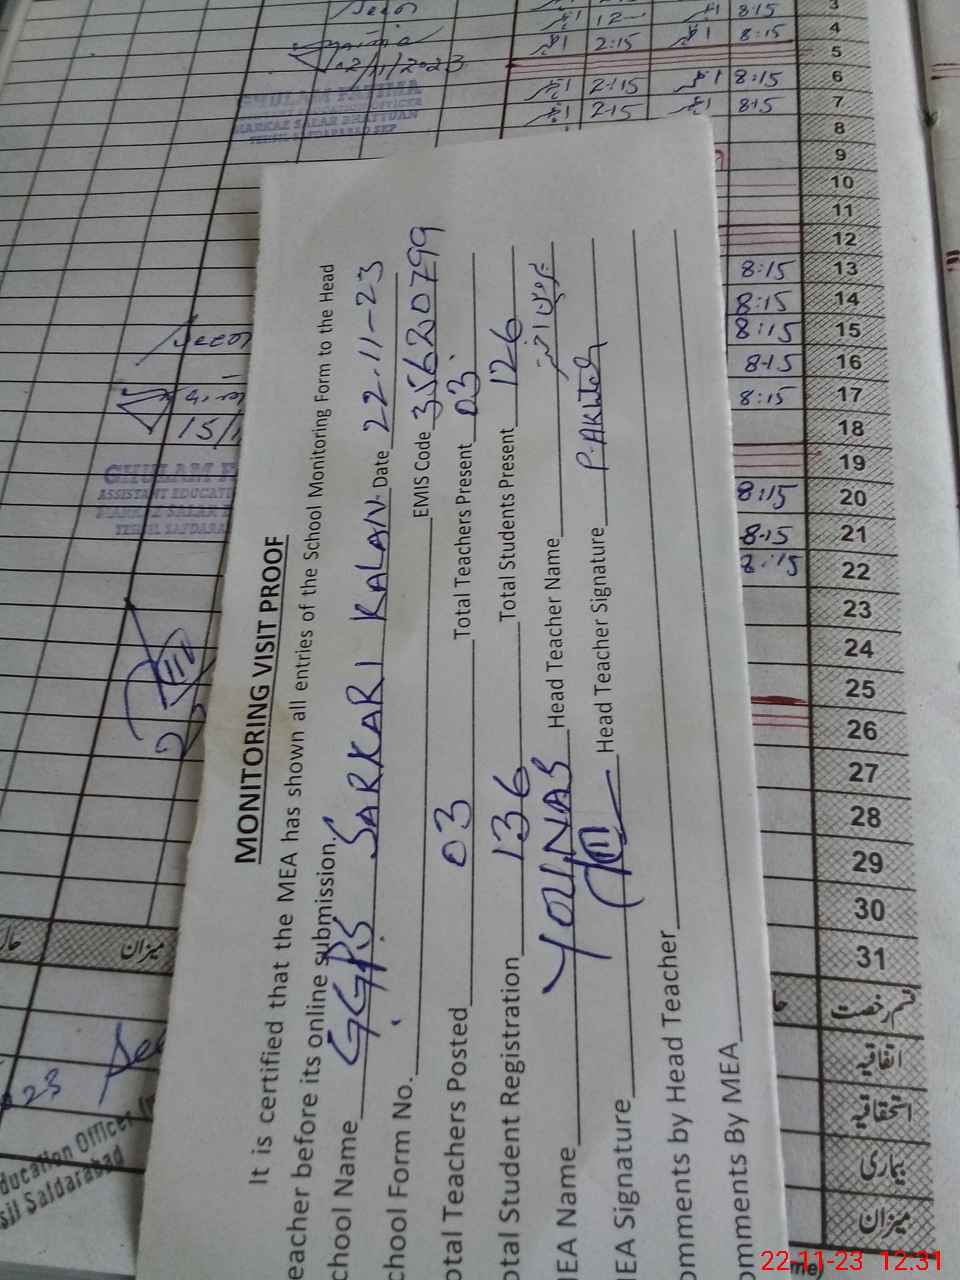 MONITORING VISIT PROOF
It is certified that the MEA has shown all entries of the School Monitoring Form to the Head
eacher before its online submission.
chool Name GGPS SARKARI KALAN Date 22-11-23
chool Form No. EMIS Code 35620799
otal Teachers Posted 03 Total Teachers Present 03
otal Student Registration 136 Total Students Present 126
MEA Name YOUNAS Head Teacher Name پروین اختر
MEA Signature Head Teacher Signature P. Akhtar
omments by Head Teacher
omments By MEA
12/11/2023
GHULAM FATIMA
MARKAZ SALAR BHATTIAN
TEHSIL SAFDARABAD SKP
15/1
GHULAM F
ASSISTANT EDUCATI
MARKAZ SALAR
TEHSIL SAFDARA
ducation Officer
sil Safdarabad
23
میزان
12 8:15 3
2:15 8:15 4
5
2:15 8:15 6
2:15 8:15 7
8
9
10
11
12
8:15 13
8:15 14
8:15 15
8:15 16
8:15 17
18
19
8:15 20
8:15 21
8:15 22
23
24
25
26
27
28
29
30
31
قسم رخصت
اتفاقیہ
استحقاقیہ
بیماری
میزان
22-11-23 12:31